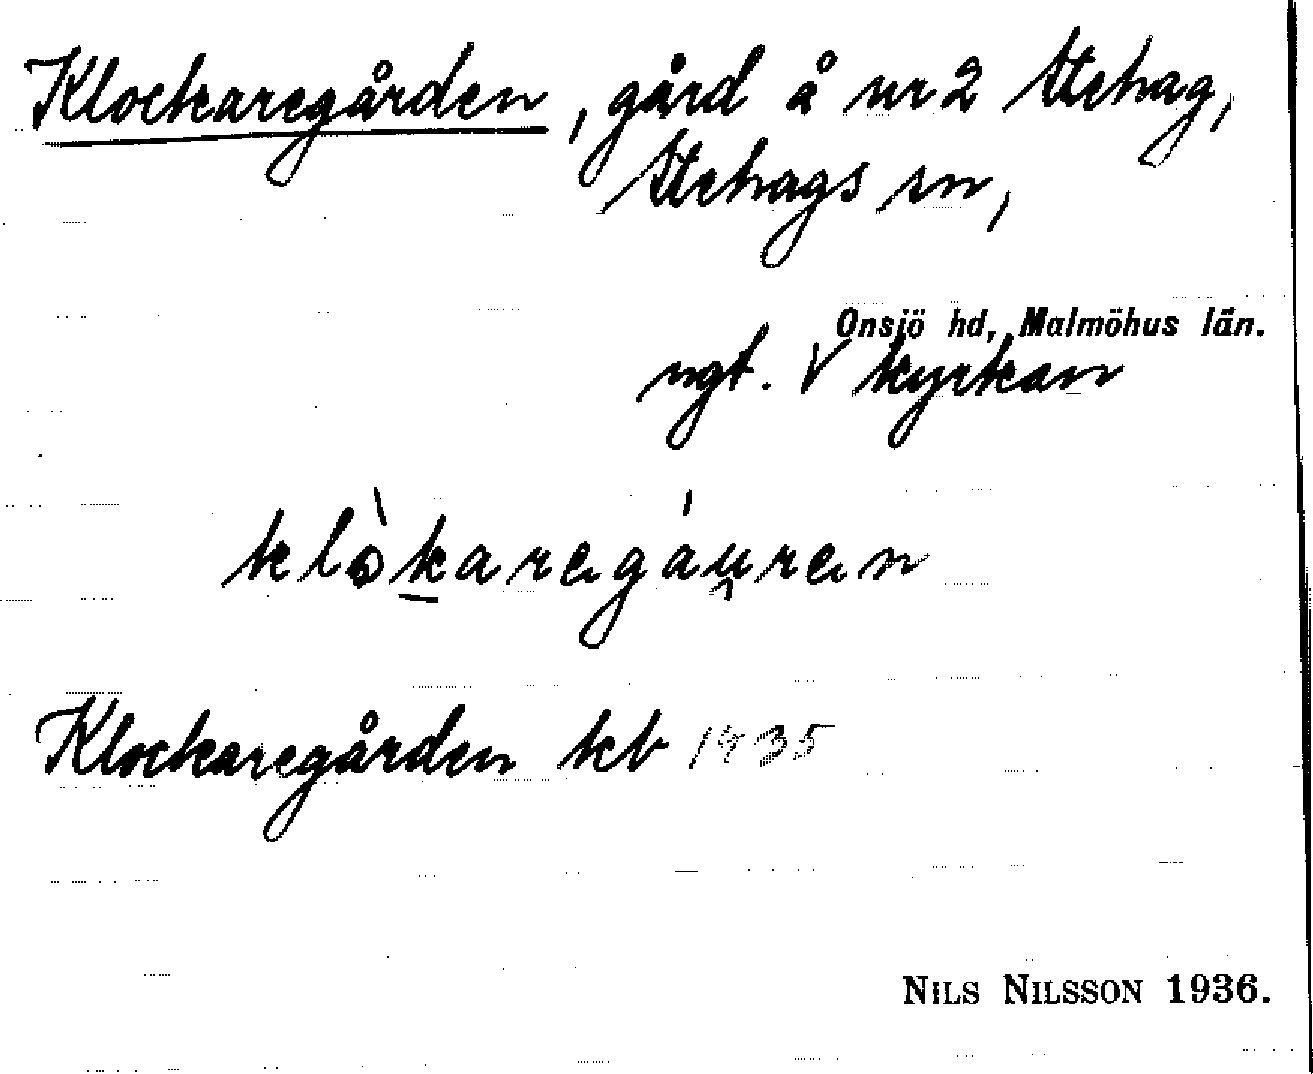 Klockaregården, gård å nr 2 Stehag,
Stehags sn,
Onsjö hd, Malmöhus län.
ngt. V kyrkan
klòkaregáu̯ren
Klockaregården kb 1935
NILS NILSSON 1936.